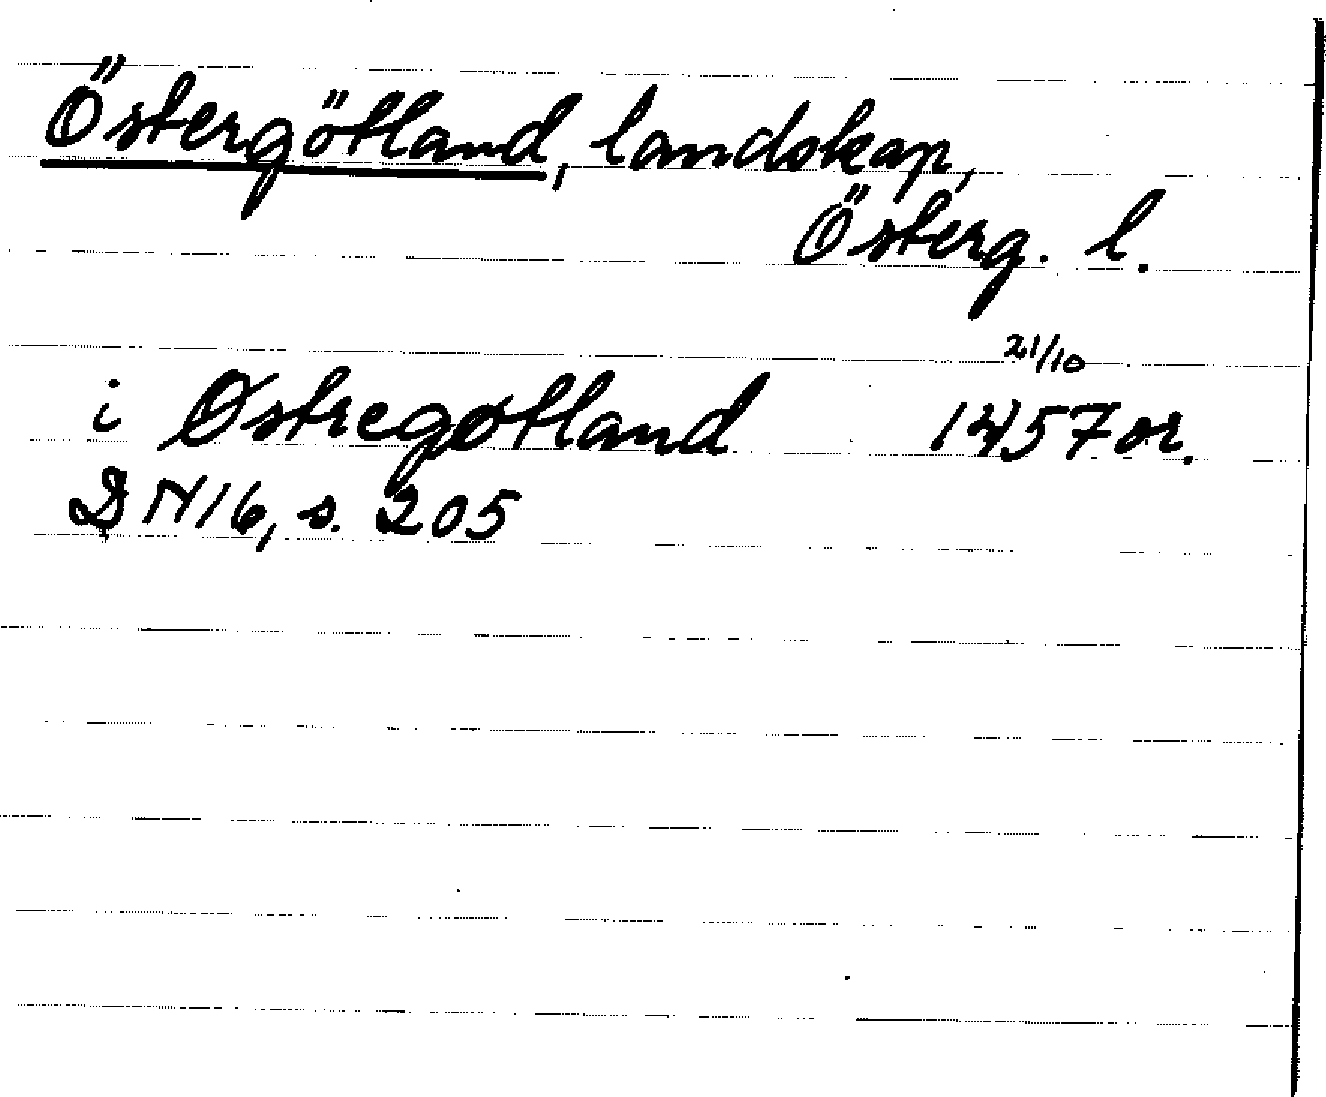 Östergötland, landskap,
Österg. l.
21/10
i Østregøtland 1457 or.
DN 16, s. 205